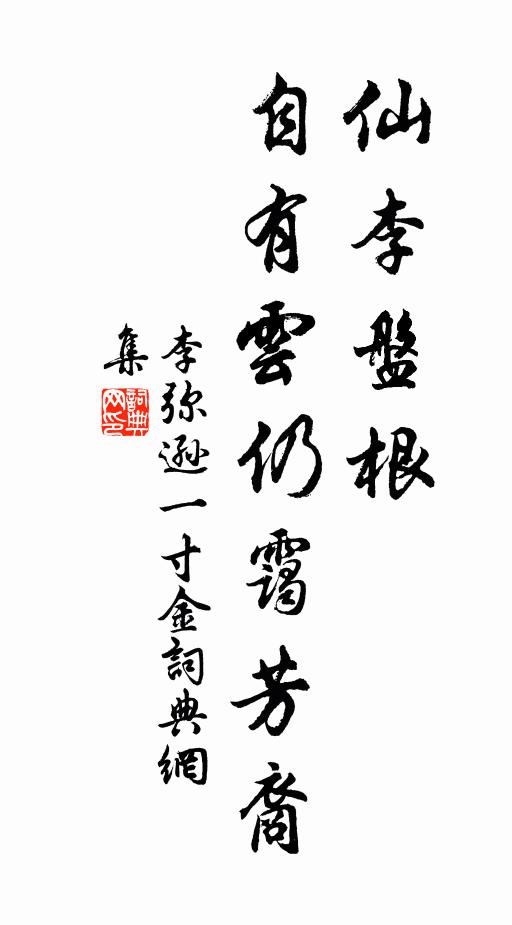 仙李盤根
自有雲仍靄芳裔
李弥遜一寸金詞典網
集
詞典
网印